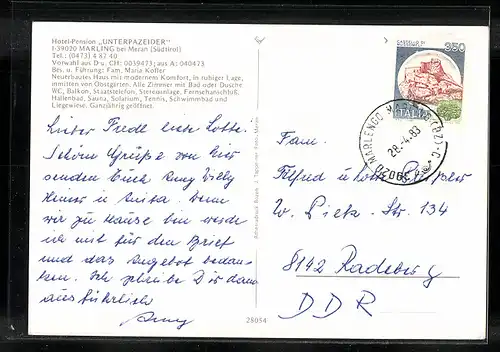 Hotel-Pension „UNTERPAZEIDER"
I-39020 MARLING bei Meran (Südtirol)
Tel.: (0473) 4 87 40
Vorwahl aus D u. CH: 0039473; aus A: 040473
Bes. u. Führung: Fam. Maria Kofler
Neuerbautes Haus mit modernem Komfort, in ruhiger Lage,
inmitten von Obstgärten. Alle Zimmer mit Bad oder Dusche
WC, Balkon, Staatstelefon, Stereoanlage, Fernsehanschluß.
Hallenbad, Sauna, Solarium, Tennis, Schwimmbad und
Liegewiese. Ganzjährig geöffnet.
350
ITALIA
MARLENGO (BZ)
28.-4.83
39020
Lieber Fredl liebe Lotte.
Schöne Grüße von hier
senden Euch Anny Willy
Heiner u. Anita. Wenn
wir zu Hause bin werde
ich mit für den Brief
und das Angebot bedan-
ken. Ich schreibe Dir dann
ausführlich
Anny
Fam.
Alfred u. Lotte
W. Pieck-Str. 134
8142 Radeberg
DDR
28054